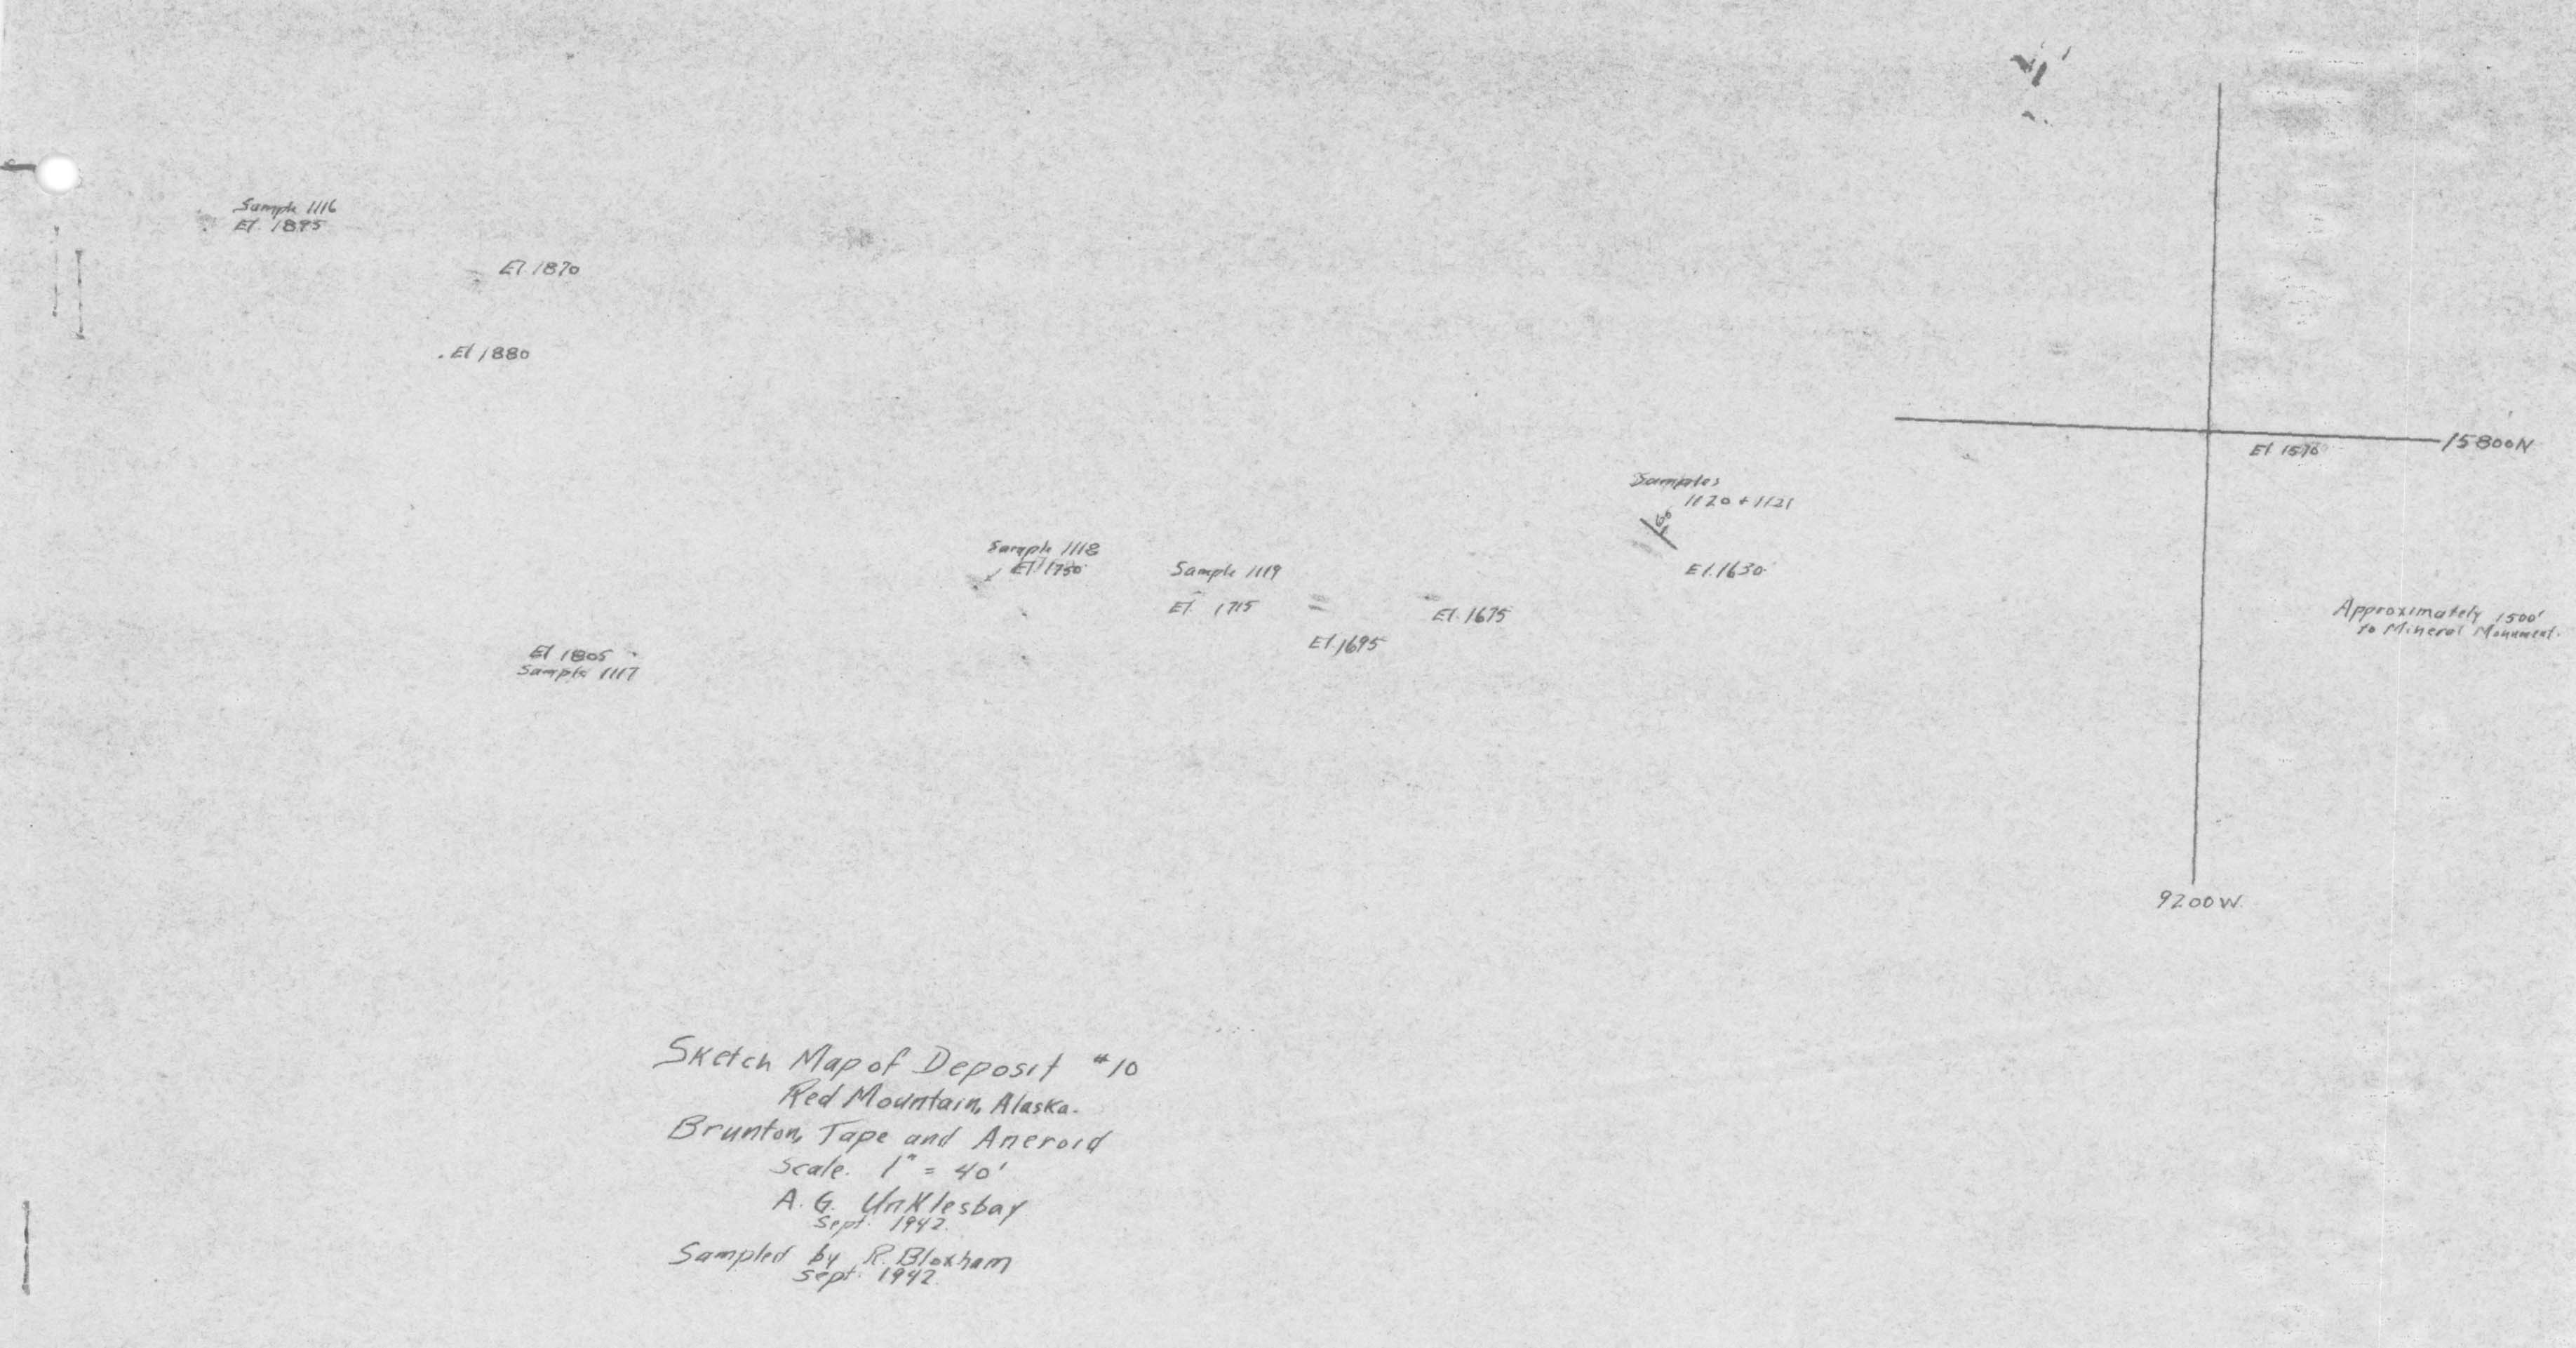 Sample 1116
El. 1895
El 1870
El 1880
15800N
El 1570
Samples
1120 + 1121
60
Sample 1118
El 1750
Sample 1119
El. 1630
El. 1715
El. 1675
Approximately 1500'
to Mineral Monument.
El. 1695
El 1805
Sample 1117
9200W.
Sketch Map of Deposit #10
Red Mountain, Alaska.
Brunton, Tape and Aneroid
Scale. 1" = 40'
A. G. Unklesbay
Sept. 1942.
Sampled by R. Bloxham
Sept. 1942.